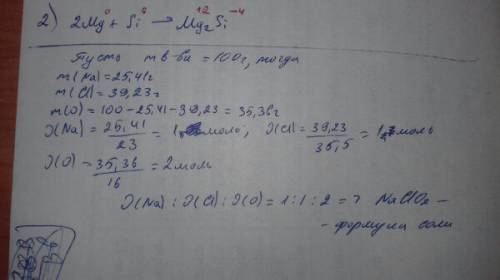 2) 2Mg⁰ + Si⁰ → Mg₂⁺²Si⁻⁴
Пусть m в-ва = 100г, тогда
m(Na) = 25,41г
m(Cl) = 39,23г
m(O) = 100 - 25,41 - 39,23 = 35,36г
ν(Na) = 25,41/23 = 1 моль, ν(Cl) = 39,23/35,5 = 1 моль
ν(O) = 35,36/16 = 2 моль
ν(Na) : ν(Cl) : ν(O) = 1:1:2 => NaClO₂ -
- формула соли